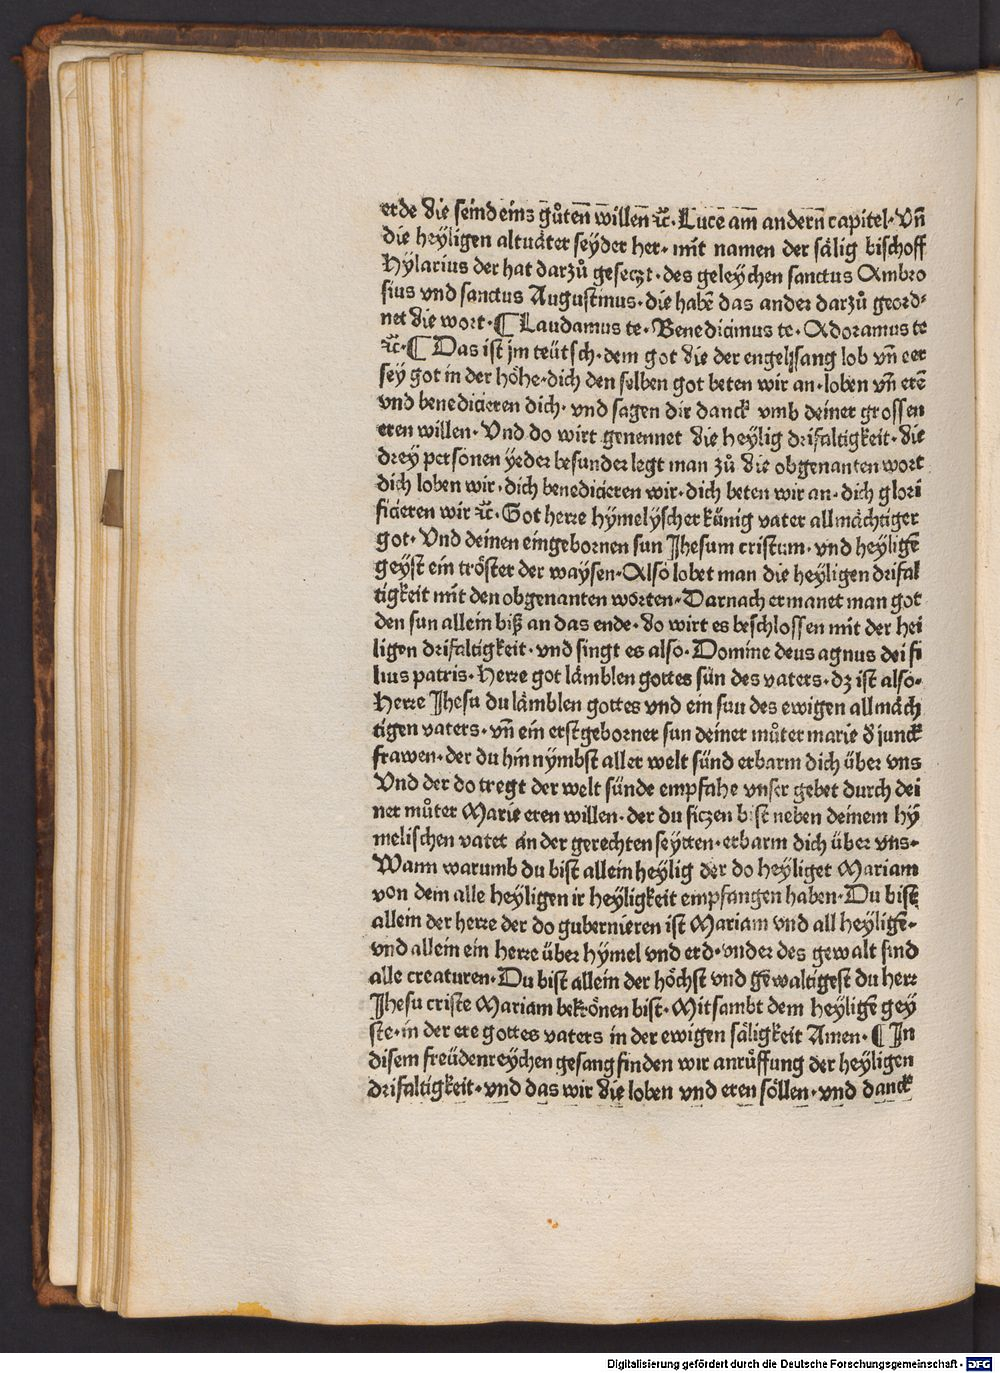 erde die seind eins gůten̄ willen̄ ⁊c̄. Luce am̄ andern̄ capitel. Vn̄
die heyligen altuäter seyder her. mit namen der sälig bischoff
Hylarius der hat darzů geseczt. des geleychen sanctus Ambro
sius vnd sanctus Augustinus. die habē das ander darzů geord⸗
net die wort. ¶ Laudamus te. Benedicimus te. Adoramus te
⁊c̄. ¶ Das ist jm teütsch. dem got die der engel sang lob vn̄ eer
sey got in der höhe. dich den selben got beten wir an. loben vn̄ erē
vnd benedicieren dich. vnd sagen dir danck vmb deiner grossen
eren willen. Vnd do wirt genennet die heylig drifaltigkeit. die
drey personen yeder besunder legt man zů die obgenanten wort
dich loben wir. dich benedicieren wir. dich beten wir an. dich glori
ficieren wir ⁊c̄. Got herre hymelyscher künig vater allmächtiger
got. Vnd deinen eingebornen sun Jhesum cristum. vnd heyligē
geyst ein tröster der waysen. Also lobet man die heyligen drifal
tigkeit mit den obgenanten worten. Darnach ermanet man got
den sun allein biß an das ende. do wirt es beschlossen mit der hei
ligen drifaltigkeit. vnd singt es also. Domine deus agnus dei fi
lius patris. Herre got lämblen gottes sün des vaters. dz ist also.
Herre Jhesu du lämblen gottes vnd ein sun des ewigen allmäch
tigen vaters. vn̄ ein erstgeborner sun deiner můter marie đ junck
frawen. der du hin nymbst aller welt sünd erbarm dich über vns
Vnd der do tregt der welt sünde empfahe vnser gebet durch dei
ner můter Marie eren willen. der du siczen bist neben deinem hȳ
melischen vater an der gerechten seytten. erbarm dich über vns.
Wann warumb du bist allein heylig der do heyliget Mariam
von dem alle heyligen ir heyligkeit empfangen haben. Du bist
allein der herre der do gubernieren ist Mariam vnd all heyligē.
vnd allein ein herre über hymel vnd erd. vnder des gewalt sind
alle creaturen. Du bist allein der höchst vnd gewaltigest du herr
Jhesu criste Mariam bekrönen bist. Mitsambt dem heyligē gey
ste. in der ere gottes vaters in der ewigen säligkeit Amen. ¶ In
disem freüdenreychen gesang finden wir anrůffung der heyligen
drifaltigkeit. vnd das wir die loben vnd eren söllen. vnd danck
Digitalisierung gefördert durch die Deutsche Forschungsgemeinschaft - DFG